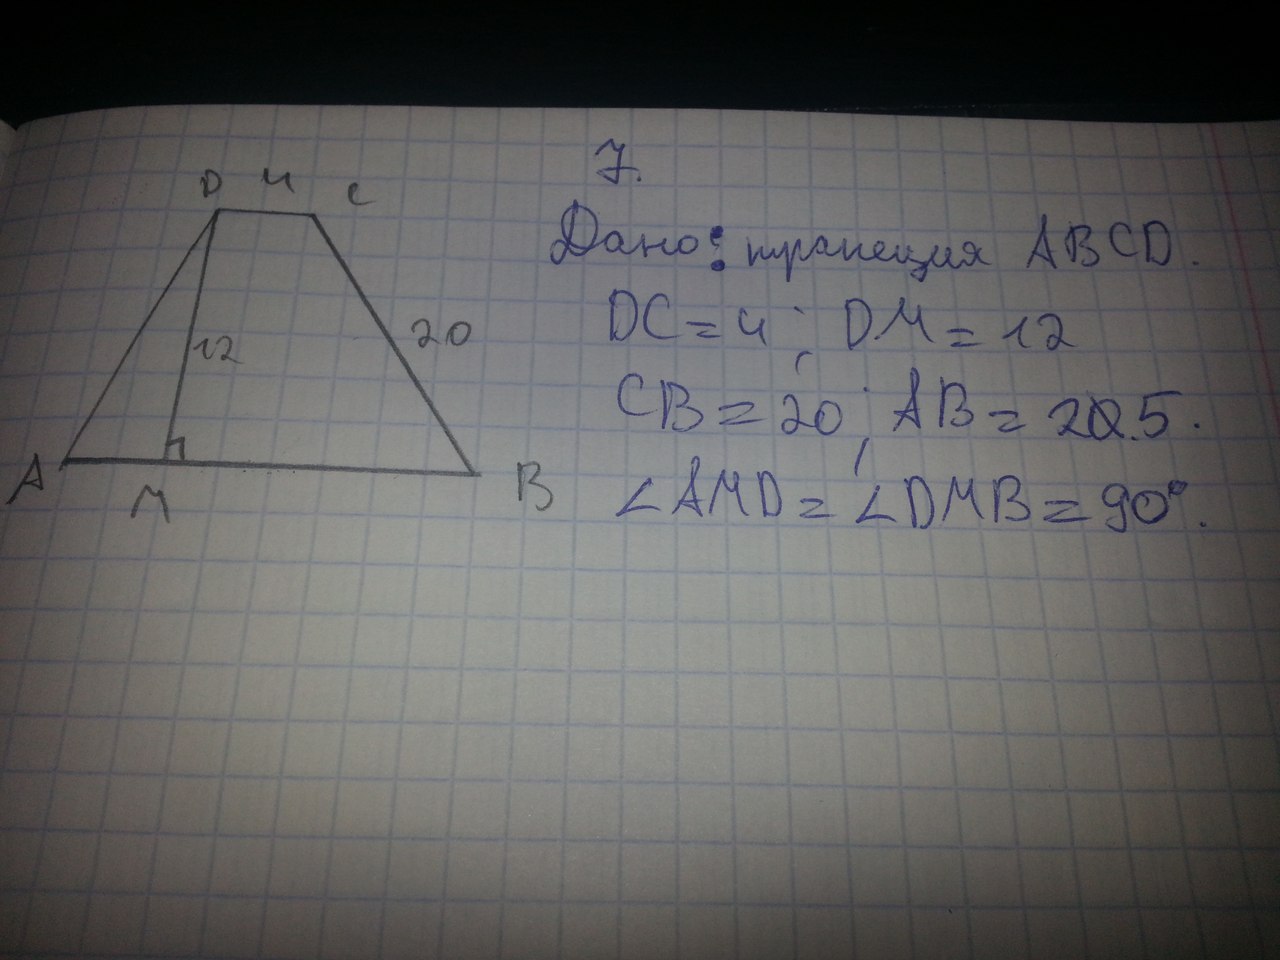 7.
D 4 C
12
20
A
M
B
Дано: трапеция ABCD.
DC = 4; DM = 12
CB = 20; AB =
∠AMD = ∠DMB = 90°.